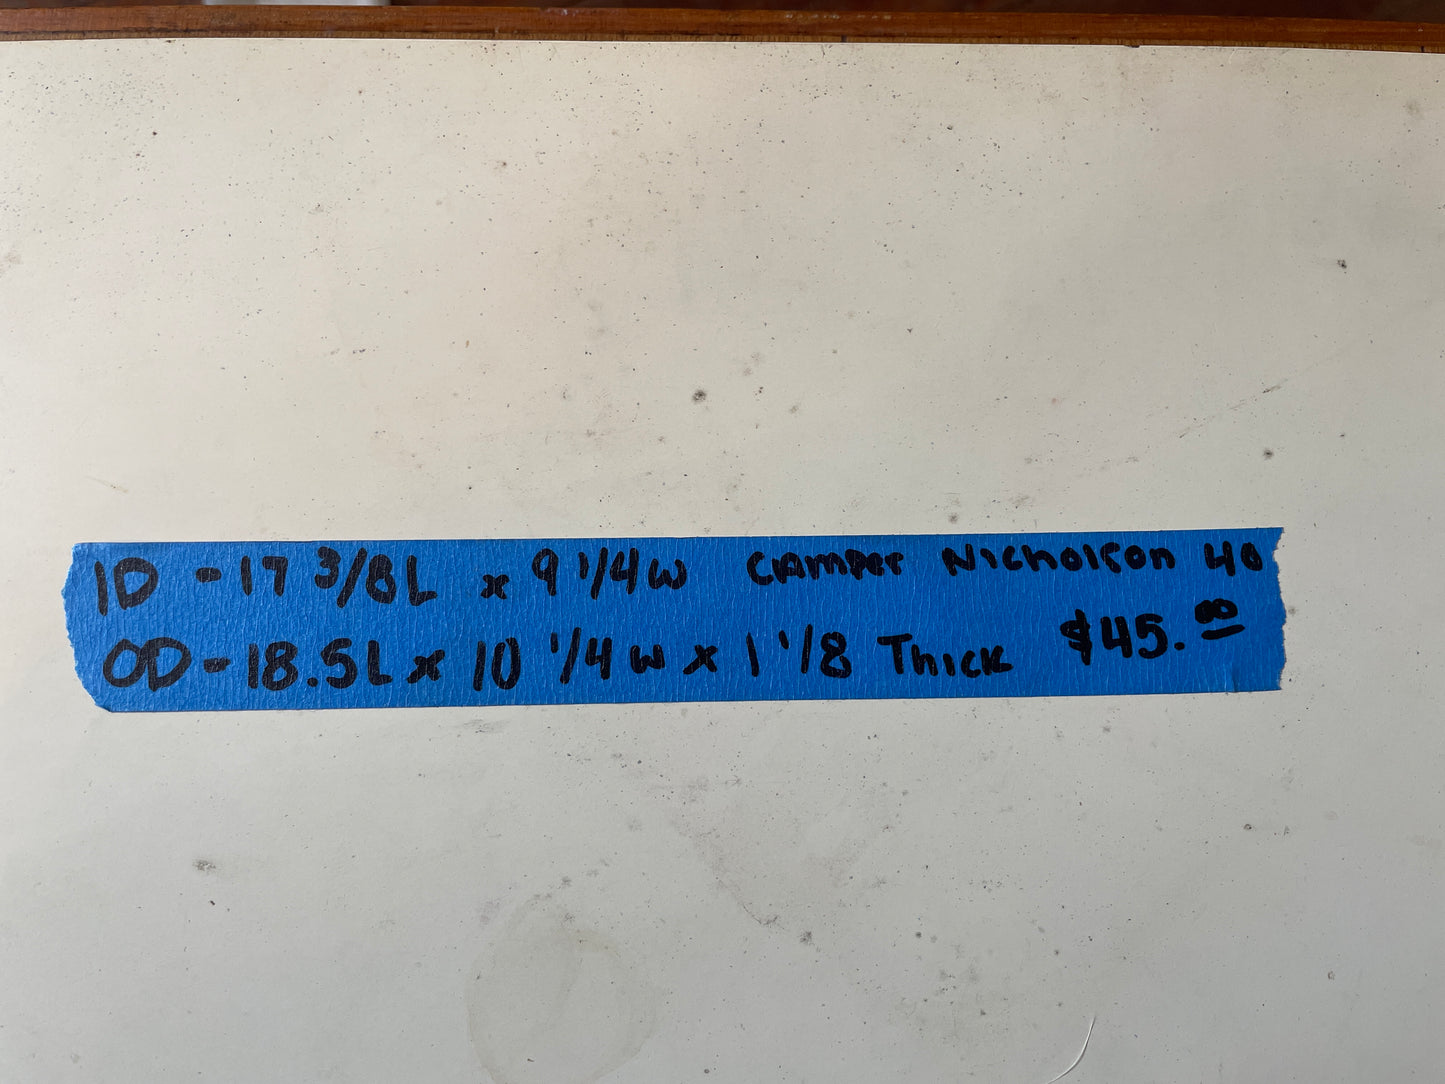 ID - 17 3/8 L x 9 1/4 W CAMPER NICHOLSON 40
OD - 18.5 L x 10 1/4 W x 1 1/8 THICK $45.00